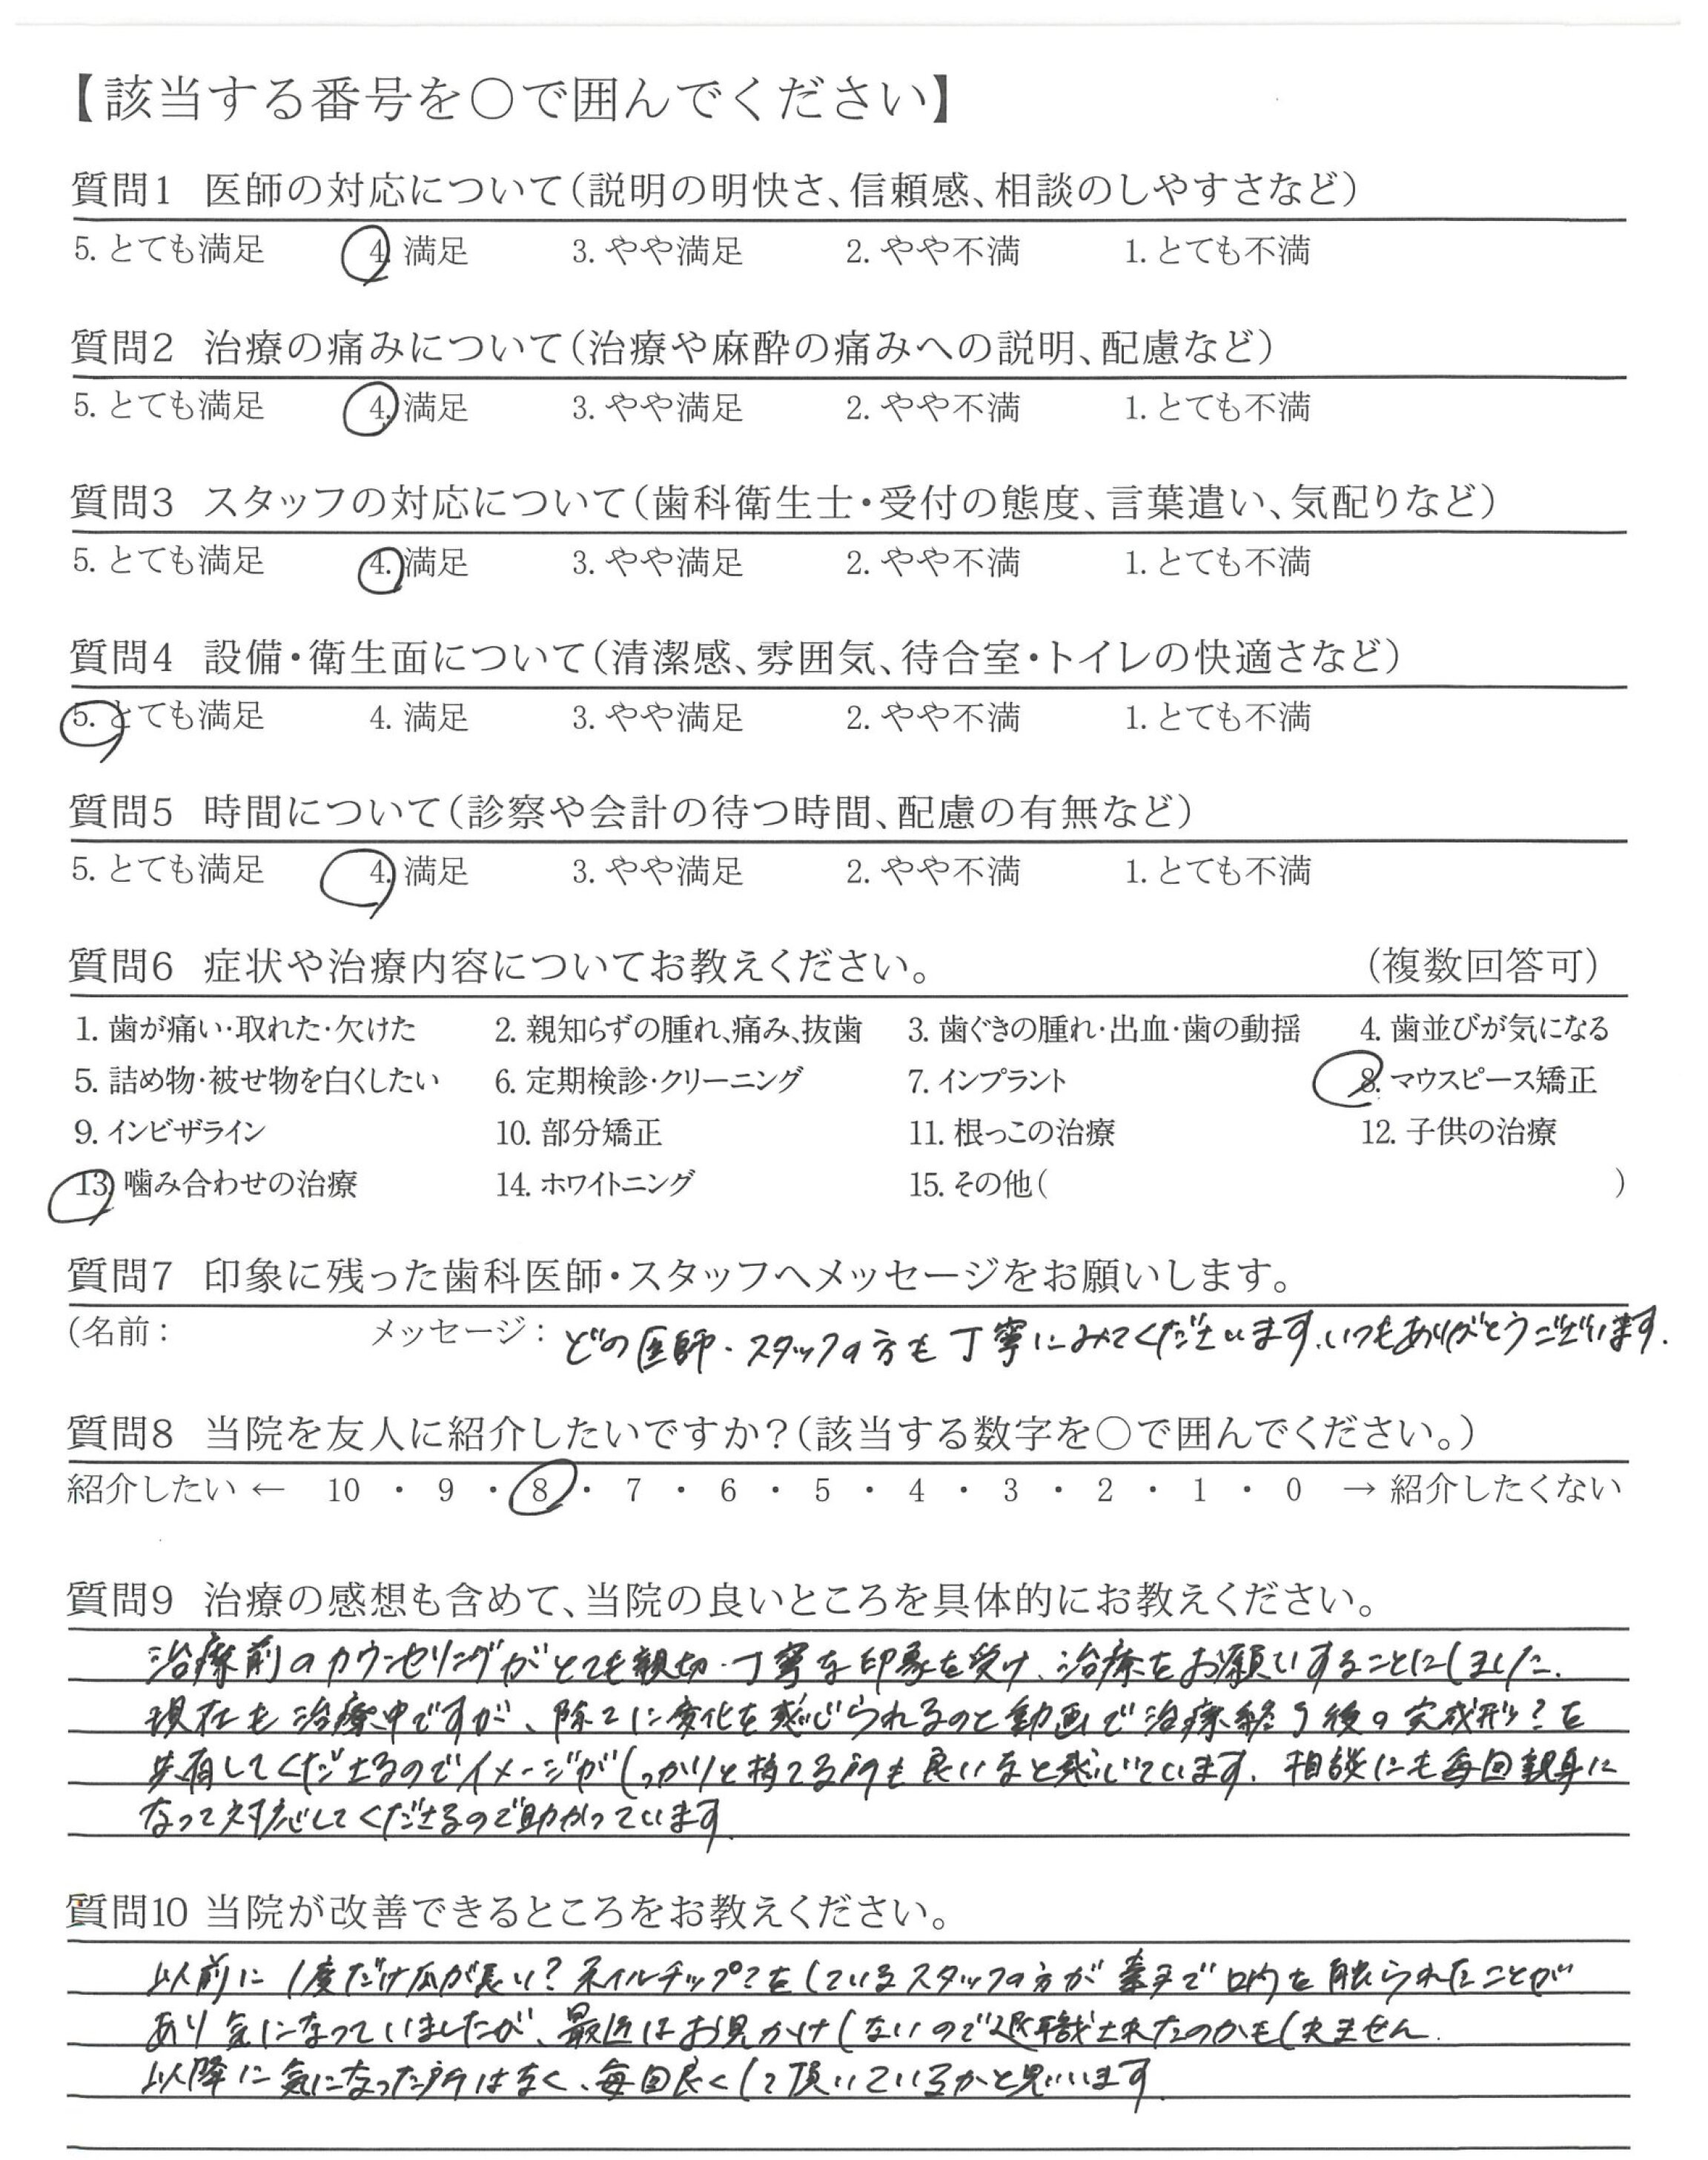 【該当する番号を○で囲んでください】
質問1 医師の対応について(説明の明快さ、信頼感、相談のしやすさなど)
5. とても満足 4. 満足 3. やや満足 2. やや不満 1. とても不満
質問2 治療の痛みについて(治療や麻酔の痛みへの説明、配慮など)
5. とても満足 4. 満足 3. やや満足 2. やや不満 1. とても不満
質問3 スタッフの対応について(歯科衛生士・受付の態度、言葉遣い、気配りなど)
5. とても満足 4. 満足 3. やや満足 2. やや不満 1. とても不満
質問4 設備・衛生面について(清潔感、雰囲気、待合室・トイレの快適さなど)
5. とても満足 4. 満足 3. やや満足 2. やや不満 1. とても不満
質問5 時間について(診察や会計の待つ時間、配慮の有無など)
5. とても満足 4. 満足 3. やや満足 2. やや不満 1. とても不満
質問6 症状や治療内容についてお教えください。 (複数回答可)
1. 歯が痛い・取れた・欠けた 2. 親知らずの腫れ、痛み、抜歯 3. 歯ぐきの腫れ・出血・歯の動揺 4. 歯並びが気になる
5. 詰め物・被せ物を白くしたい 6. 定期検診・クリーニング 7. インプラント 8. マウスピース矯正
9. インビザライン 10. 部分矯正 11. 根っこの治療 12. 子供の治療
13. 噛み合わせの治療 14. ホワイトニング 15. その他( )
質問7 印象に残った歯科医師・スタッフへメッセージをお願いします。
(名前: メッセージ: どの医師・スタッフの方も丁寧にみてくださいます、いつもありがとうございます.
質問8 当院を友人に紹介したいですか?(該当する数字を○で囲んでください。)
紹介したい ← 10 ・ 9 ・ 8 ・ 7 ・ 6 ・ 5 ・ 4 ・ 3 ・ 2 ・ 1 ・ 0 → 紹介したくない
質問9 治療の感想も含めて、当院の良いところを具体的にお教えください。
治療前のカウンセリングがとても親切・丁寧な印象を受け、治療をお願いすることにしました.
現在も治療中ですが、除々に変化を感じられるのと動画で治療終了後の完成形?を
共有してくださるのでイメージがしっかりと持てる所も良いなと感じています. 相談にも毎回親身に
なって対応してくださるので助かっています.
質問10 当院が改善できるところをお教えください。
以前に1度だけ爪が長い?ネイルチップ?をしているスタッフの方が素手で口内を触られたことが
あり気になっていましたが、最近はお見かけしないので退職されたのかもしれません.
以降に気になった所はなく、毎回良くして頂いているかと思います.